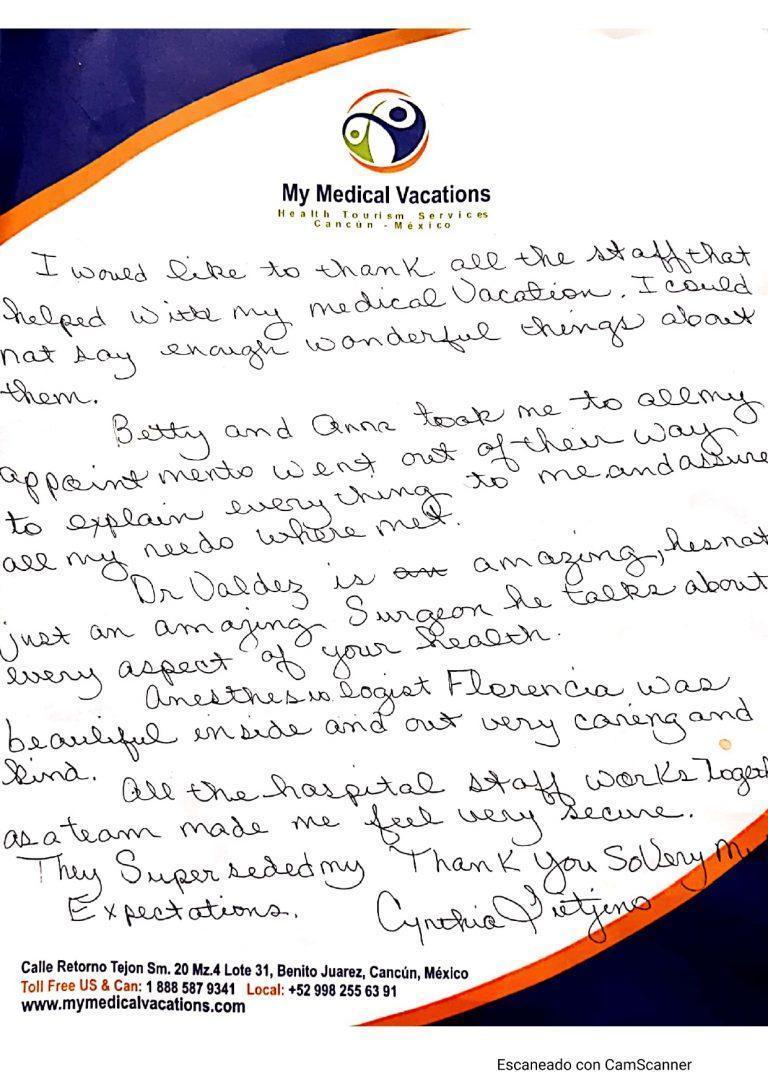 My Medical Vacations
Health Tourism Services
Cancún - México
I would like to thank all the staff that
helped with my medical Vacation. I could
not say enough wonderful things about
them.
Betty and Anna took me to all my
appointments went out of their way
to explain everything to me and assure
all my needs where met.
Dr Valdez is an amazing, hes not
just an amazing Surgeon he talks about
every aspect of your health.
Anesthesiologist Florencia was
beautiful inside and out very caring and
kind.
All the hospital staff works Togeth
as a team made me feel very secure.
They Superseded my Thank You So Very M
Expectations. Cynthia
Calle Retorno Tejon Sm. 20 Mz.4 Lote 31, Benito Juarez, Cancún, México
Toll Free US & Can: 1 888 587 9341 Local: +52 998 255 63 91
www.mymedicalvacations.com
Escaneado con CamScanner